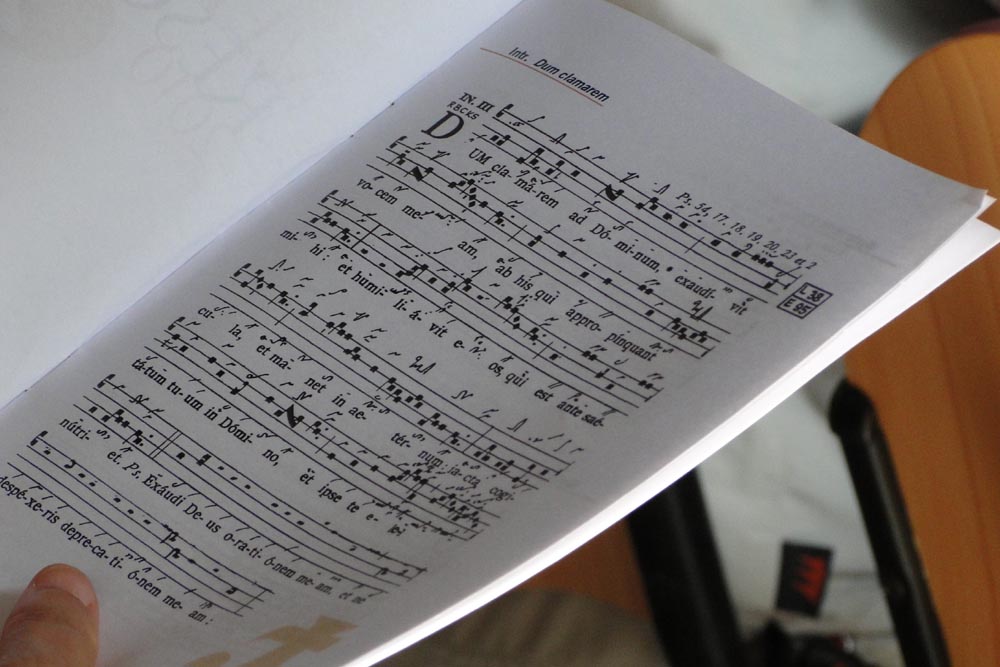 Intr. Dum clamarem
IN. III
RBCKS
Ps. 54, 17. 18. 19. 20. 23 et 2
L 38
E 95
DUM cla- má- rem ad Dó- mi- num, exaudí- vit
vo- cem me- am, ab his qui appro- pínquant
mi- hi : et humi- li- á- vit e- os, qui est ante saé-
cu- la, et ma- net in ae- tér- num : ja- cta cogi-
tá- tum tu- um in Dómi- no, et ipse te e-
nútri- et. Ps. Exáudi De- us o-ra-ti- ónem me- am, et ne
despé-xe-ris depre-ca- ti- ónem me- am :